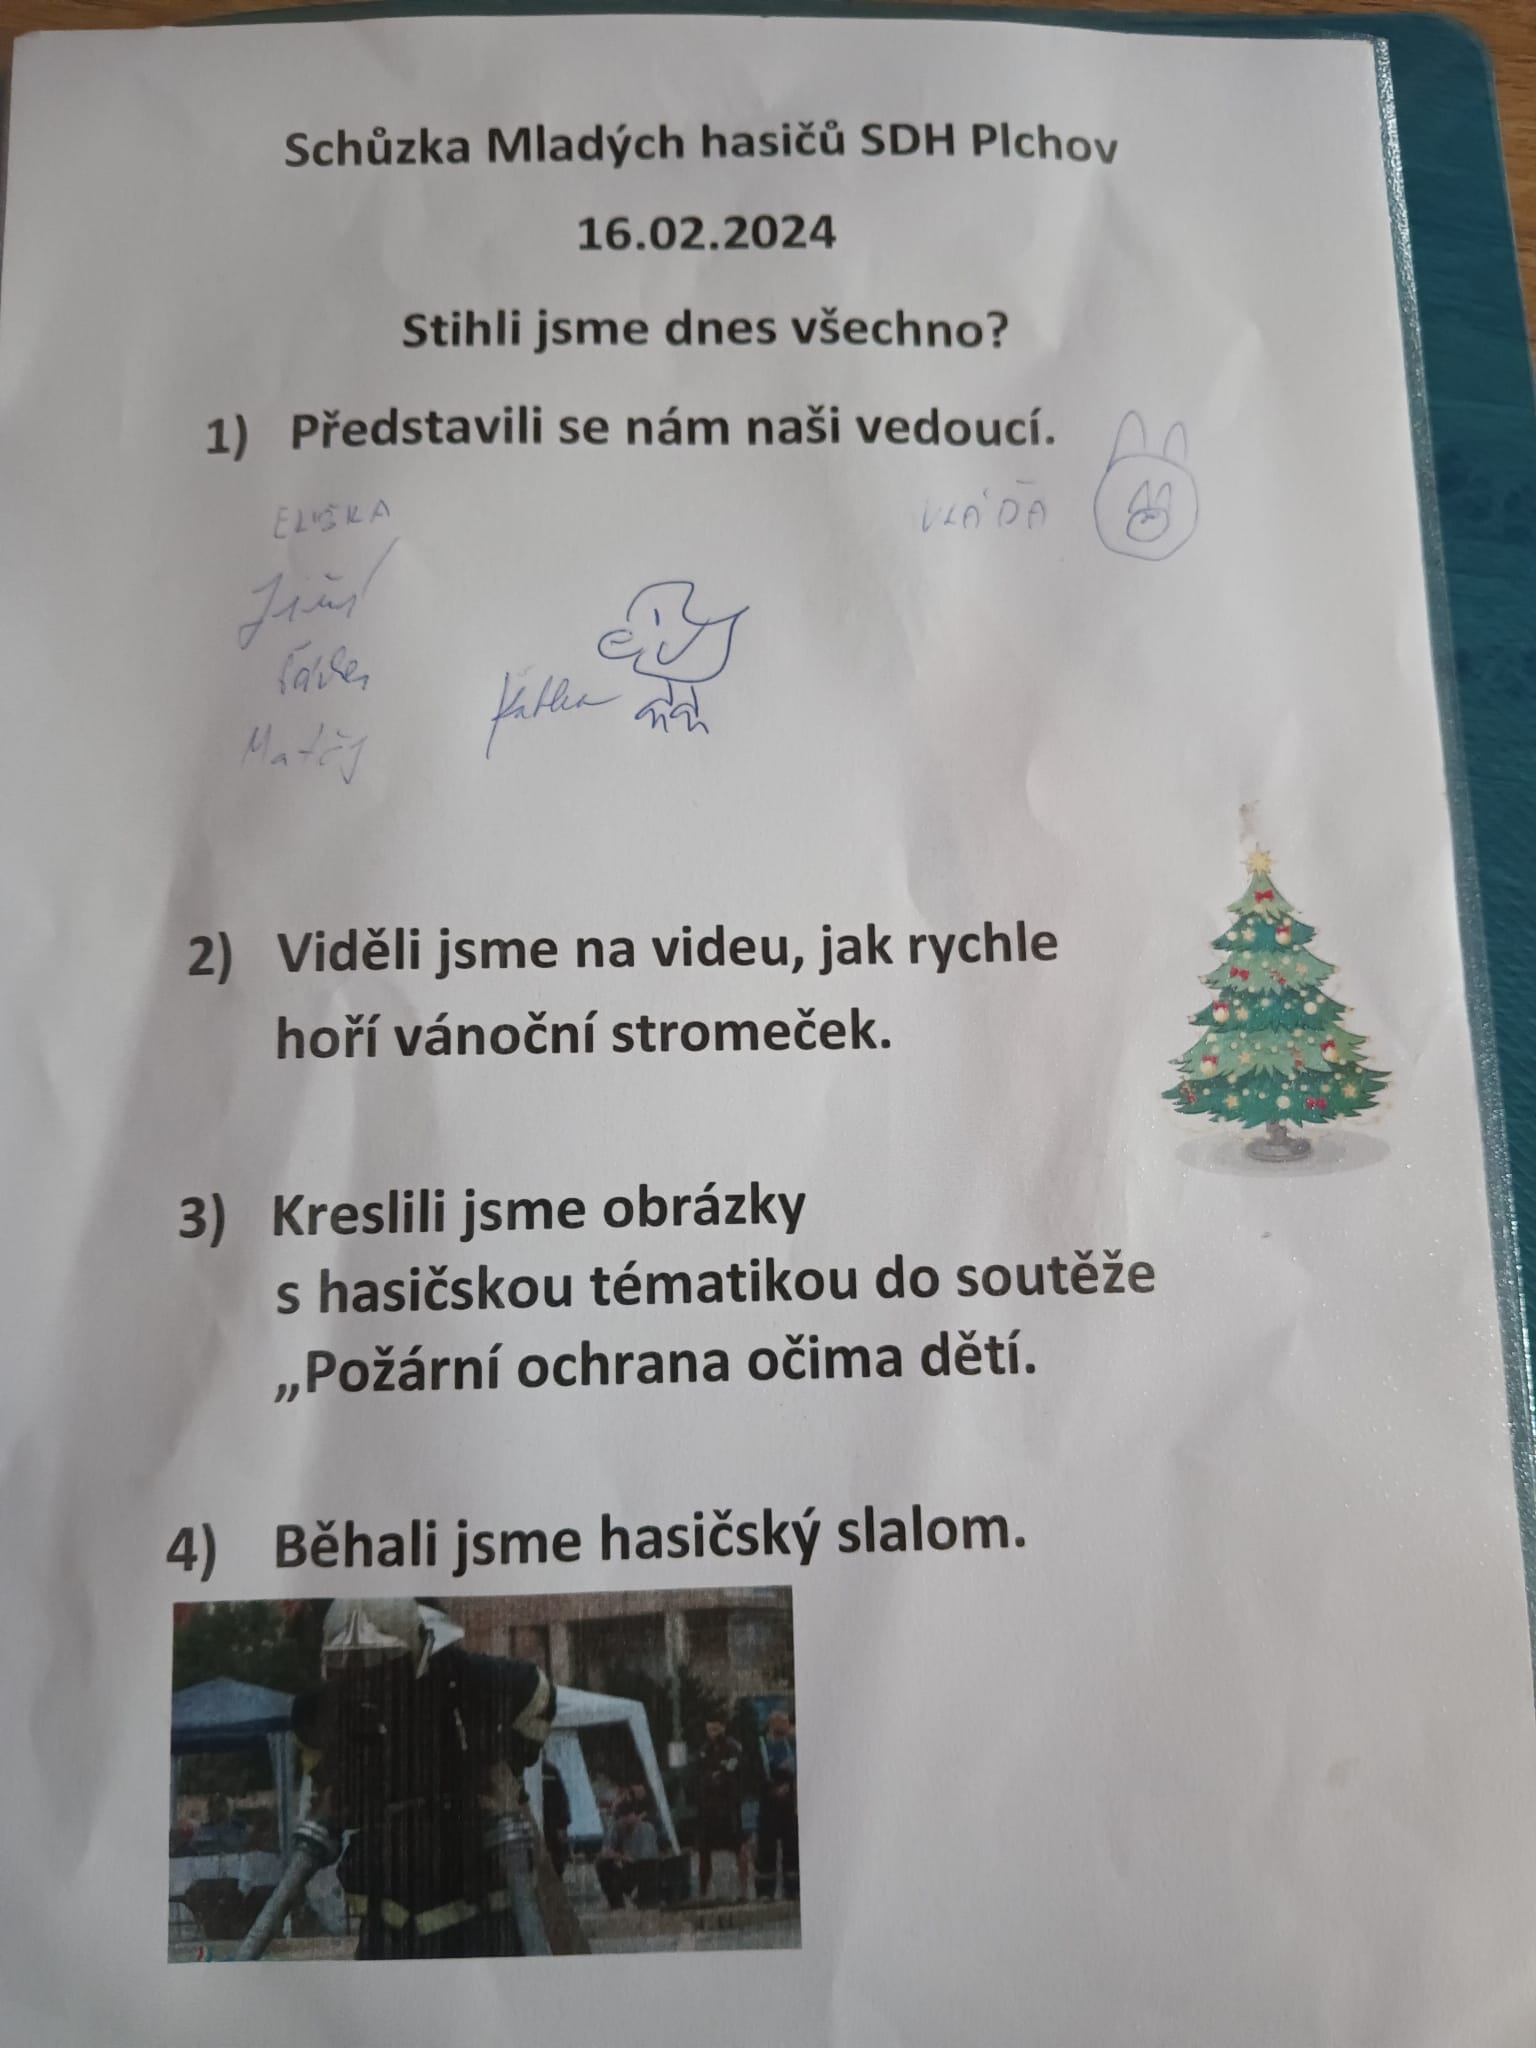 Schůzka Mladých hasičů SDH Plchov
16.02.2024
Stihli jsme dnes všechno?
1) Představili se nám naši vedoucí.
ELIŠKA
VLÁĎA
Jiří
Katka
Matěj
2) Viděli jsme na videu, jak rychle
hoří vánoční stromeček.
3) Kreslili jsme obrázky
s hasičskou tématikou do soutěže
„Požární ochrana očima dětí.
4) Běhali jsme hasičský slalom.